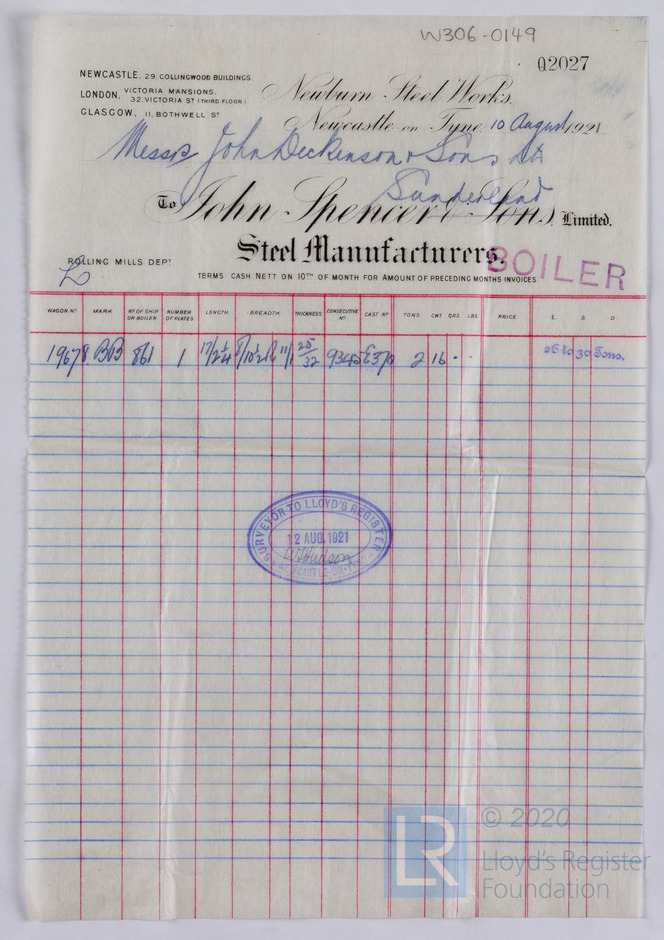 W306-0149
Q2027
NEWCASTLE. 29. COLLINGWOOD BUILDINGS.
LONDON. VICTORIA MANSIONS. 32. VICTORIA ST (THIRD FLOOR)
GLASGOW, 11, BOTHWELL ST
Newburn Steel Works,
Newcastle on Tyne, 10 August 1921
Messrs John Dickinson & Sons Ld
Sunderland
To John Spencer & Sons, Limited.
Steel Manufacturers.
ROLLING MILLS DEPT
BOILER
TERMS: CASH NETT ON 10TH OF MONTH FOR AMOUNT OF PRECEDING MONTHS INVOICES.
WAGON No MARK No OF SHIP OR BOILER NUMBER OF PLATES LENGTH BREADTH THICKNESS CONSECUTIVE No CAST No TONS. CWT QRS. LBS. PRICE £ S D
19678 BB 861 1 25/32 9345 E370 2 16 - - 26 to 30 Tons.
SURVEYOR TO LLOYD'S REGISTER
12 AUG. 1921
Hudson
NEWCASTLE-ON-TYNE
LR
© 2020
Lloyd's Register
Foundation